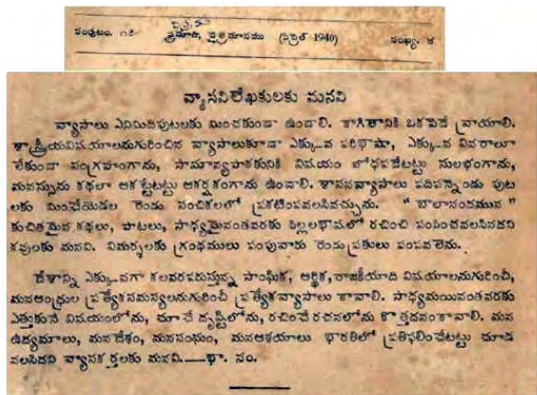 సంపుటం. ౧౭ ప్రమాది, చైత్రమాసము (ఏప్రిల్ 1940) సంఖ్య. ౪
వ్యాసలేఖకులకు మనవి
వ్యాసాలు ఎనిమిదిపుటలకు మించకుండా ఉండాలి. కాగితానికి ఒకవైపే వ్రాయాలి.
శాస్త్రీయవిషయాలనుగురించిన వ్యాసాలుకూడా ఎక్కువ పరిభాషా, ఎక్కువ వివరాలూ
లేకుండా సంగ్రహంగాను, సామాన్యపాఠకునికి విషయం బోధపడేటట్టు సులభంగాను,
మనస్సును కథలా ఆకట్టేటట్టు ఆకర్షకంగాను ఉండాలి. శాసనవ్యాసాలు పదిపన్నెండు పుట
లకు మించేయెడల రెండు సంచికలలో ప్రకటింపవలసివచ్చును. "బాలానందమున"
కుచితమైన కథలు, పాటలు, సాధ్యమైనంతవరకు పిల్లలభాషలో రచించి పంపించవలసినదని
కవులకు మనవి. విమర్శలకు గ్రంథములు పంపువారు రెండుప్రతులు పంపవలెను.
దేశాన్ని ఎక్కువగా కలవరపరుస్తున్న సాంఘిక, ఆర్థిక, రాజకీయాది విషయాలనుగురించీ,
మనఆంధ్రుల ప్రత్యేకసమస్యలనుగురించీ ప్రత్యేకవ్యాసాలు కావాలి. సాధ్యమయినంతవరకు
ఎత్తుకునే విషయంలోను, చూచే దృష్టిలోను, రచించేరచనలోను క్రొత్తదనంకావాలి. మన
ఉద్యమాలు, మనదేశం, మనసంఘం, మనఆశయాలు భారతిలో ప్రతిఫలించేటట్టు చూడ
వలసిదని వ్యాసకర్తలకు మనవి.—భా. సం.